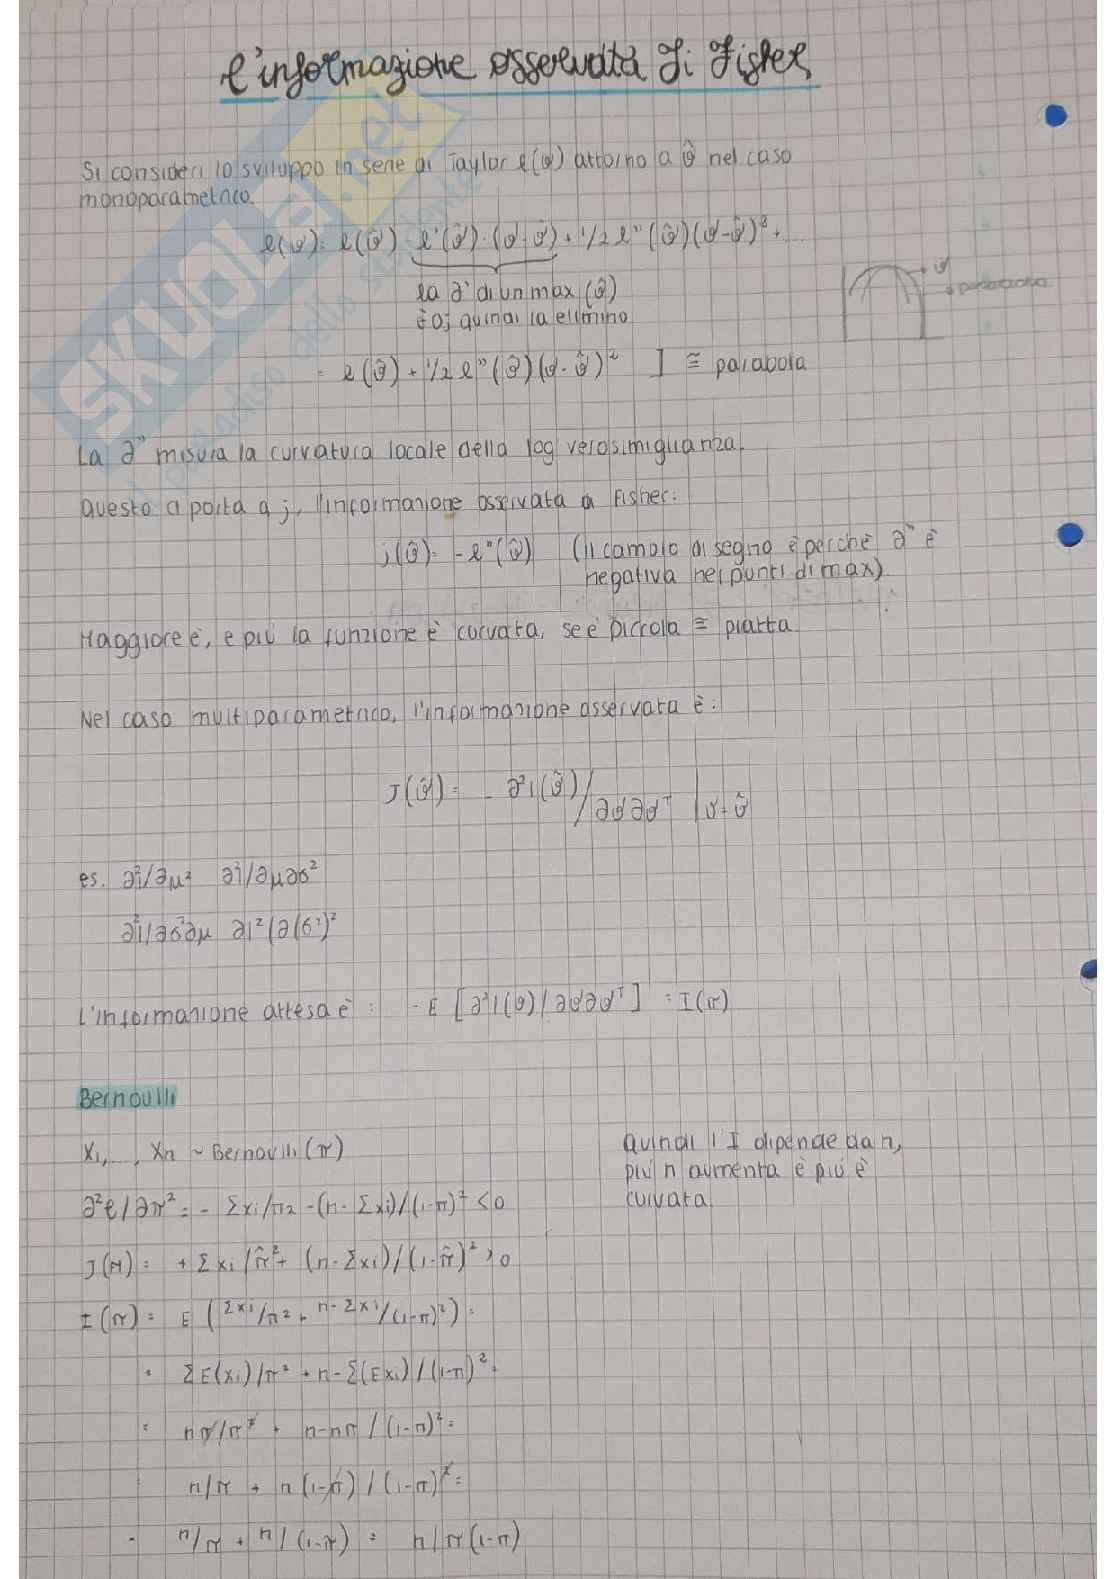 L'informazione osservata di Fisher
Si consideri lo sviluppo in serie di Taylor ℓ(θ) attorno a θ̂ nel caso
monoparametrico.
ℓ(θ) = ℓ(θ̂) + ℓ'(θ̂)·(θ-θ̂) + 1/2 ℓ''(θ̂)(θ-θ̂)² + ...
la ∂' di un max (θ̂)
è 0; quindi la elimino
= ℓ(θ̂) + 1/2 ℓ''(θ̂)(θ-θ̂)² ] ≅ parabola
La ∂'' misura la curvatura locale della log verosimiglianza.
Questo ci porta a j, l'informazione osservata di Fisher:
j(θ̂) = -ℓ''(θ̂) (il cambio di segno è perché ∂'' è
negativa nei punti di max)
Maggiore è, e più la funzione è curvata, se è piccola ≅ piatta
Nel caso multiparametrico, l'informazione osservata è:
J(θ̂) = - ∂²l(θ̂)/∂θ∂θᵀ |θ=θ̂
es. ∂²l/∂μ² ∂²l/∂μ∂σ²
∂²l/∂σ²∂μ ∂l²(∂(σ²)²
L'informazione attesa è: -E [∂²l(θ)/∂θ∂θᵀ] = I(π)
Bernoulli
X1, ..., Xn ~ Bernoulli(π)
Quindi l'I dipende da n,
più n aumenta e più è
curvata
∂²ℓ/∂π² = - Σxi/π2 - (n-Σxi)/(1-π)² < 0
J(π) = + Σxi/π̂² + (n-Σxi)/(1-π̂)² > 0
I(π) = E (Σxi/π² + n-Σxi/(1-π)²) =
= ΣE(xi)/π² + n-Σ(Exi)/(1-π)² =
= nπ/π² + n-nπ/(1-π)² =
= n/π + n(1-π)/(1-π)² =
= n/π + n/(1-π) = n/π(1-π)
SKUOLA.net